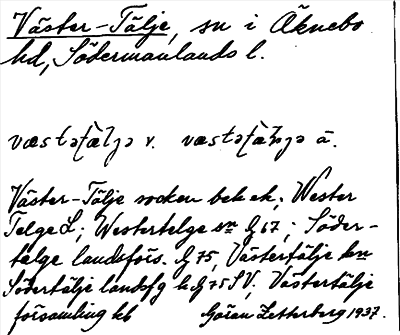 Väster-Tälje, sn i Öknebo
hd, Södermanlands l.
væstətælje v. væstətælje ä.
Väster-Tälje socken bek ek; Wester
Telge L; Westertelge sn G 67; Söder-
telge landsförs. G 75, Västertälje kn
Södertälje landsfg k G 75 SV, Västertälje
församling kb Göran Zetterberg 1937.